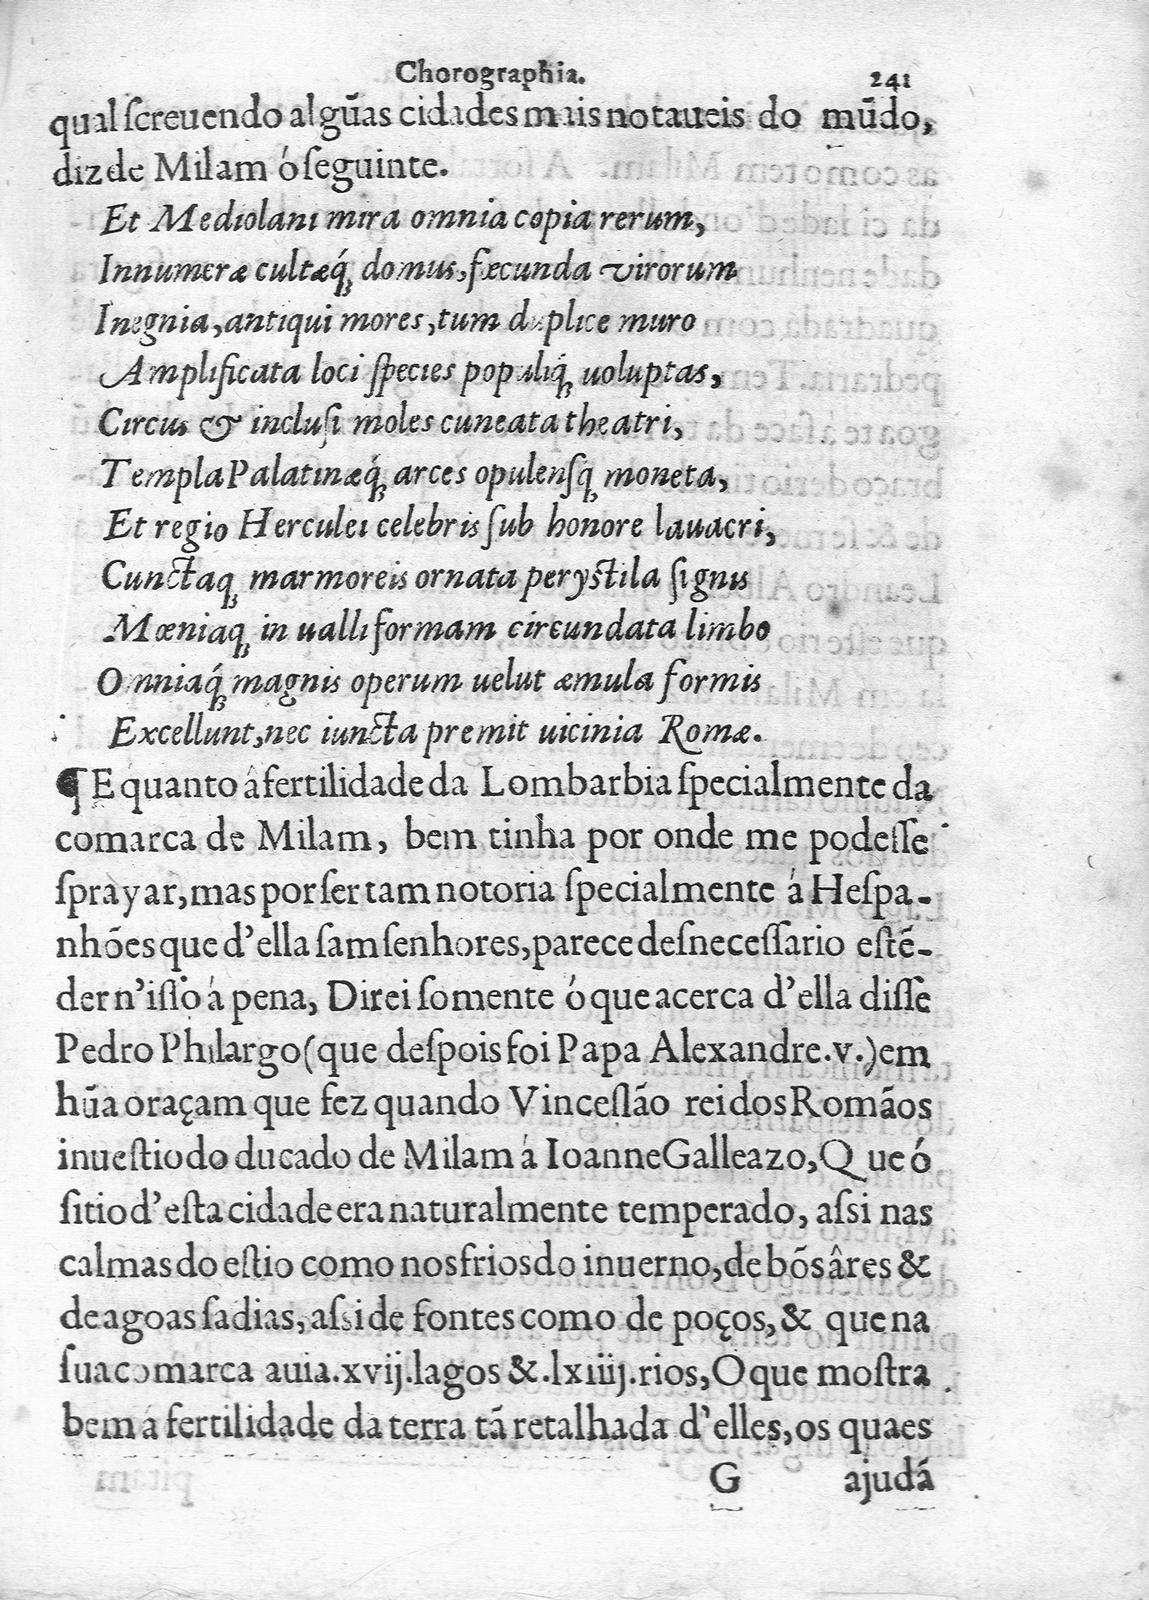 Chorographia. 241
qual ſcreuendo algũas cidades mais notaueis do mũdo,
diz de Milam ó ſeguinte.
Et Mediolani mira omnia copia rerum,
Innumeræ cultæq́; domus, fæcunda virorum
Inegnia, antiqui mores, tum duplice muro
Amplificata loci ſpecies populiq́; uoluptas,
Circus & incluſi moles cuneata theatri,
Templa Palatinæq́; arces opulenſq; moneta,
Et regio Herculei celebris ſub honore lauacri,
Cunctaq; marmoreis ornata peryſtila ſignis
Mœniaq; in ualli formam circundata limbo
Omniaq́; magnis operum uelut æmula formis
Excellunt, nec iuncta premit uicinia Romæ.
¶ E quanto â fertilidade da Lombarbia ſpecialmente da
comarca de Milam, bem tinha por onde me podeſſe
ſprayar, mas por ſer tam notoria ſpecialmente á Heſpa-
nhões que d'ella ſam ſenhores, parece deſneceſſario eſtẽ-
der n'iſſo á pena, Direi ſomente ó que acerca d'ella diſſe
Pedro Philargo (que deſpois foi Papa Alexandre .v.) em
hũa oraçam que fez quando Vinceſlão rei dos Romãos
inueſtio do ducado de Milam á Ioanne Galleazo, Que ó
ſitio d'eſta cidade era naturalmente temperado, aſsi nas
calmas do eſtio como nos frios do inuerno, de bõs âres &
de agoas ſadias, aſsi de fontes como de poços, & que na
ſua comarca auia .xvij. lagos & .lxiiij. rios, O que moſtra
bem á fertilidade da terra tã retalhada d'elles, os quaes
G ajudã